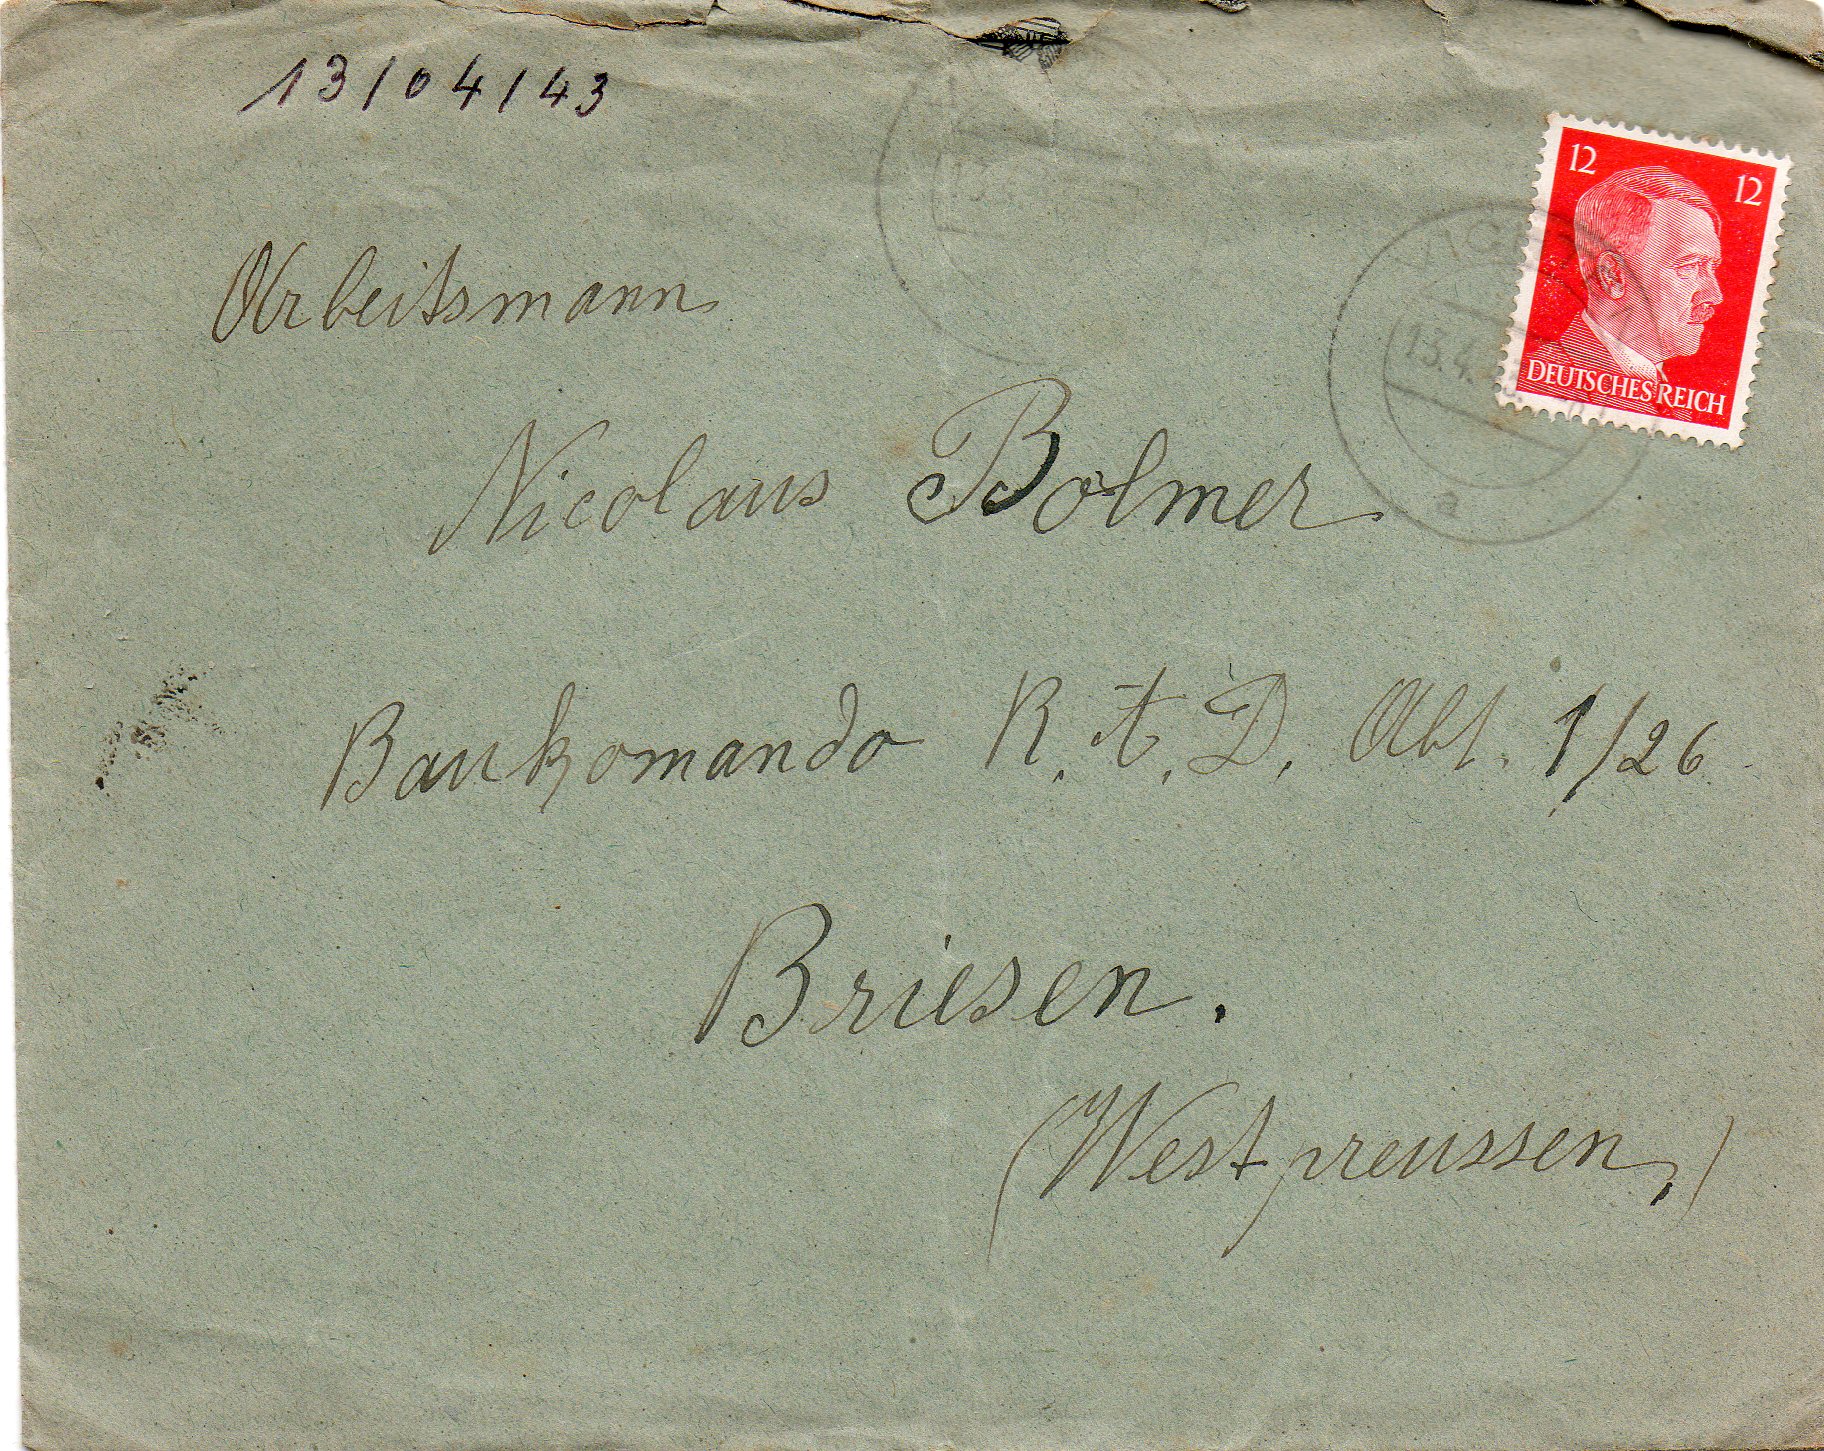 13/04/43
12 12
DEUTSCHES REICH
13.4.
a
Arbeitsmann
Nicolaus Bolmer
Baukomando R. A. D. Abt. 1/26
Briesen.
(Westpreussen,)